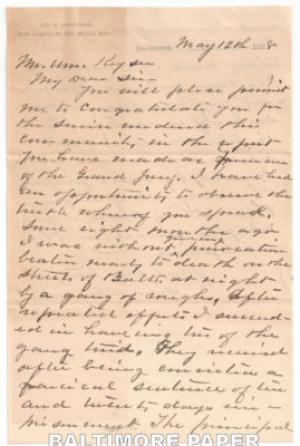 Baltimore, May 12th 1888
Mr. Wm. Keyser
My Dear Sir -
You will please permit
me to congratulate you for
the service rendered this
community in the report
you have made as foreman
of the Grand Jury. I have had
an opportunity to observe the
truth whereof you speak.
Some eight months ago
I was without provocation
beaten nearly to death on the
streets of Balto. at night
by a gang of roughs. After
repeated efforts I succeed-
ed in having two of the
gang tried. They received
after being convicted a
farcical sentence of ten
and twenty days im-
prisonment. The principal
BALTIMORE PAPER